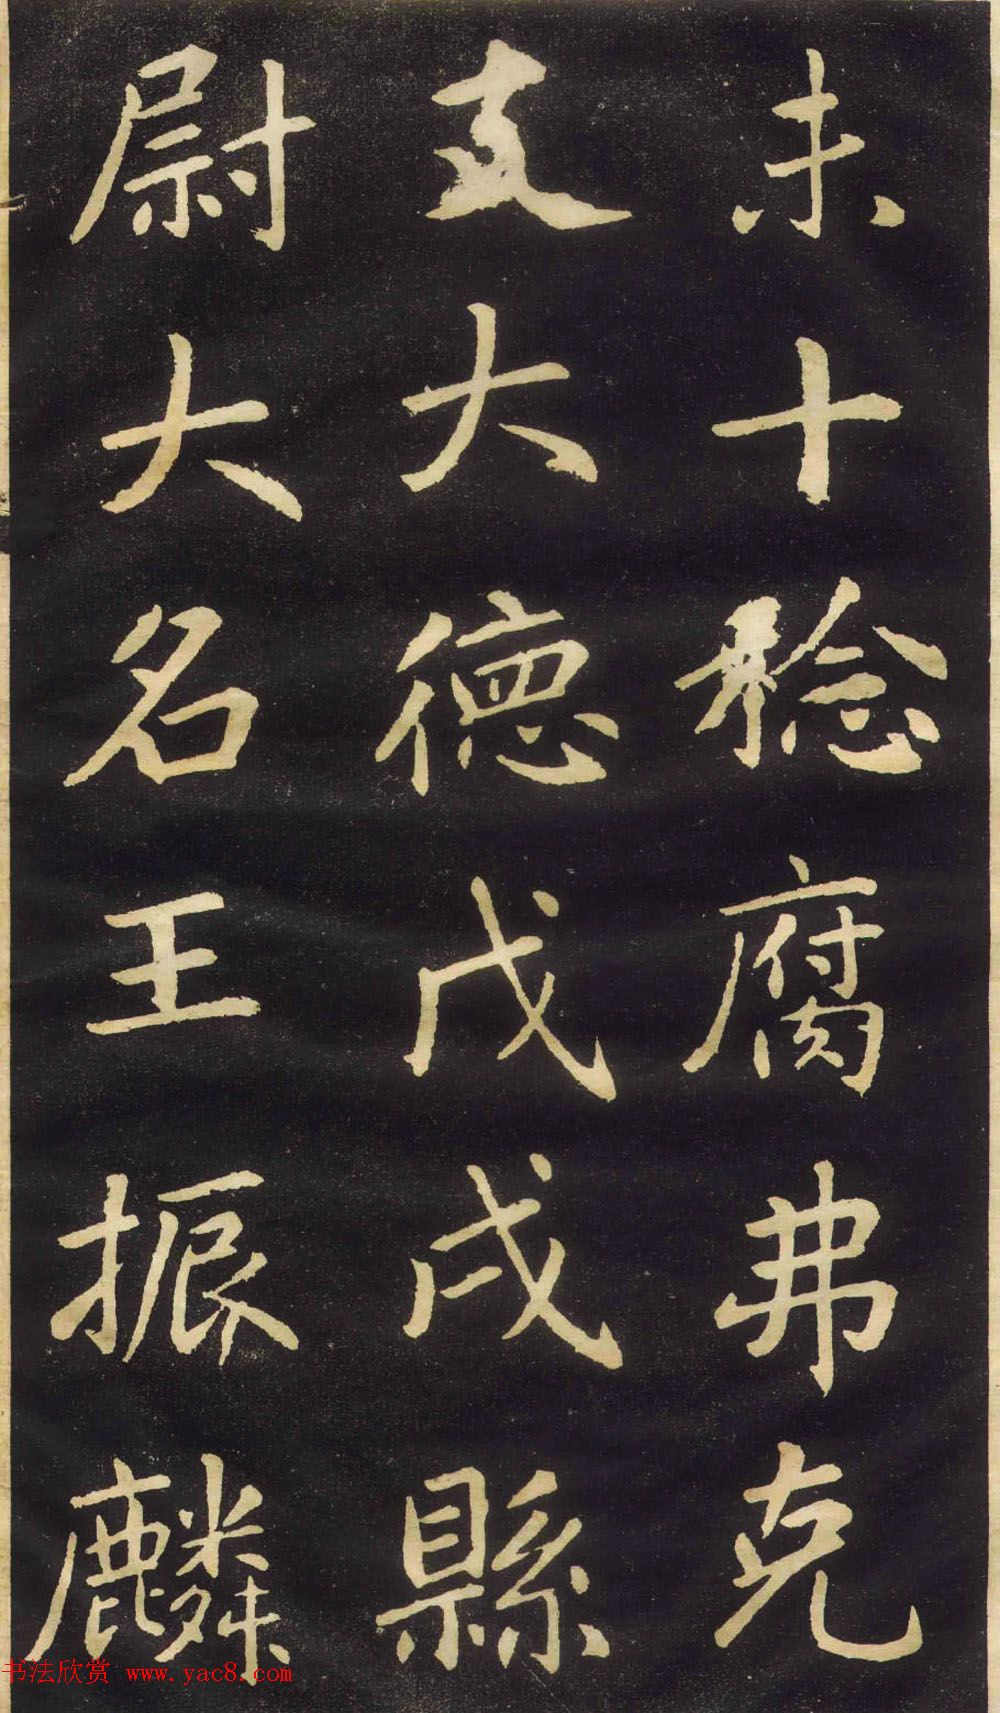 未十稔腐弗克
支大德戊戌縣
尉大名王振麟
书法欣赏 www.yac8.com